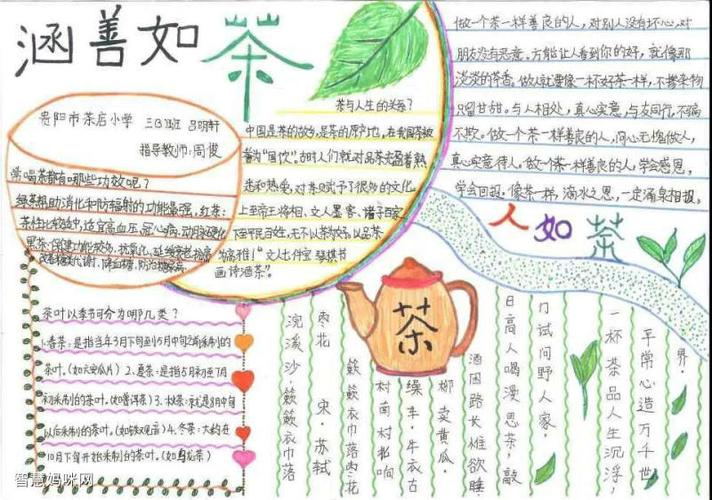 涵善如茶
贵阳市茶店小学 三(3)班 吕明轩
指导教师:周俊
常喝茶都有哪些功效呢?
绿茶帮助消化和防辐射的功能最强,红茶:
茶性比较适中,适宜高血压,冠心病,动脉硬化
茶与人生的关系?
中国是茶的故乡,是茶的原产地,在我国茶被
誉为“国饮”,古时人们就对品茶充盈着熟
悉和热爱,对茶赋予了很多的文化
上至帝王将相、文人墨客、诸子百家,
下至平民百姓,无不以茶为好,以品茶
为高雅!“文人七件宝 琴棋书
画诗酒茶”。
做一个茶一样善良的人,对别人没有坏心,对
朋友没有恶意。方能让人看到你的好,就像那
淡淡的茶香。做人就要像一杯好茶一样,不掺杂物
只留甘甜。与人相处,真心实意,与友同行,不骗
不欺。做一个茶一样善良的人,问心无愧做人,
真心实意待人。做一个茶一样善良的人,学会感恩,
学会回报。像茶一样,滴水之恩,一定涌泉相报。
人如茶
茶
茶叶以季节可分为哪几类?
1、春茶:是指当年3月下旬到5月中旬之前采制的
茶叶。(如六安瓜片)2、夏茶:是指5月初至7月
初采制的茶叶。(如普洱茶)3、秋茶:就是8月中旬
以后采制的茶叶。(如铁观音)4、冬茶:大约在
10月下旬开始采制的茶叶。(如乌龙茶)
浣溪沙·簌簌衣巾落
枣花 宋·苏轼
簌簌衣巾落枣花
村南村北响
缲车,牛衣古
柳卖黄瓜,
酒困路长惟欲睡
日高人渴漫思茶,敲
门试问野人家,
一杯茶品人生沉浮,
平常心造万千世
界
智慧妈咪网